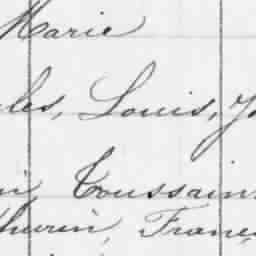 Marie
les, Louis, J
in Toussain
thurin, Franç